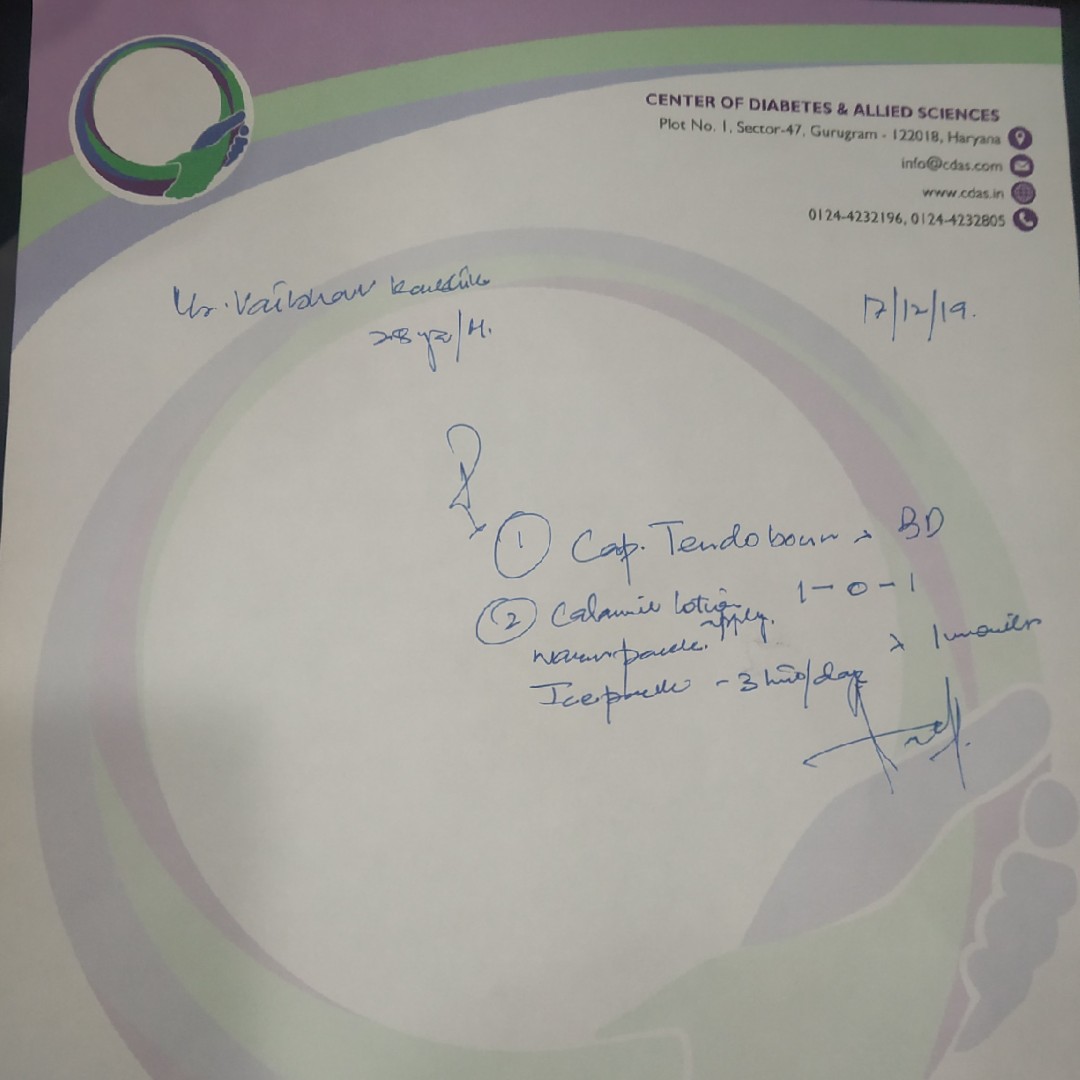 CENTER OF DIABETES & ALLIED SCIENCES
Plot No. 1, Sector-47, Gurugram - 122018, Haryana
info@cdas.com
www.cdas.in
0124-4232196, 0124-4232805
Mr. Vaibhav Kaushik
17/12/19.
28 yrs/M.
Rx
① Cap. Tendoboun x BD
1-0-1
② Calamine Lotion apply.
x 1 month
Warm pack.
Ice pack - 3 times/day